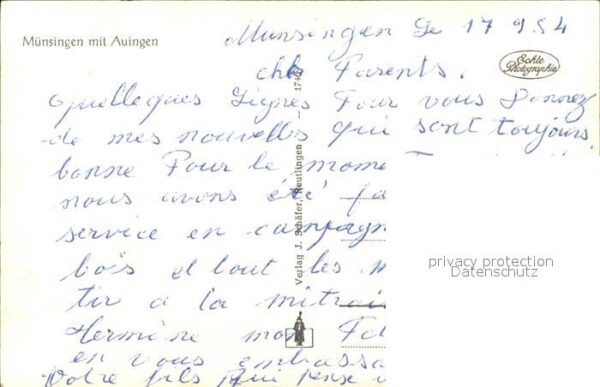 Münsingen mit Auingen
Munsingen Le 17 9 54
Echte Photographie
chs Parents.
quelleques Lignes Pour vous Donnez
de mes nouvelles qui sont toujours
bonne Pour le mome
nous avons été fa
service en campagn
bois et tout les
tir a la mitrai
Hermine mon
en vous embassa
Votre fils qui pense
Verlag J. Schäfer, Reutlingen
privacy protection
Datenschutz